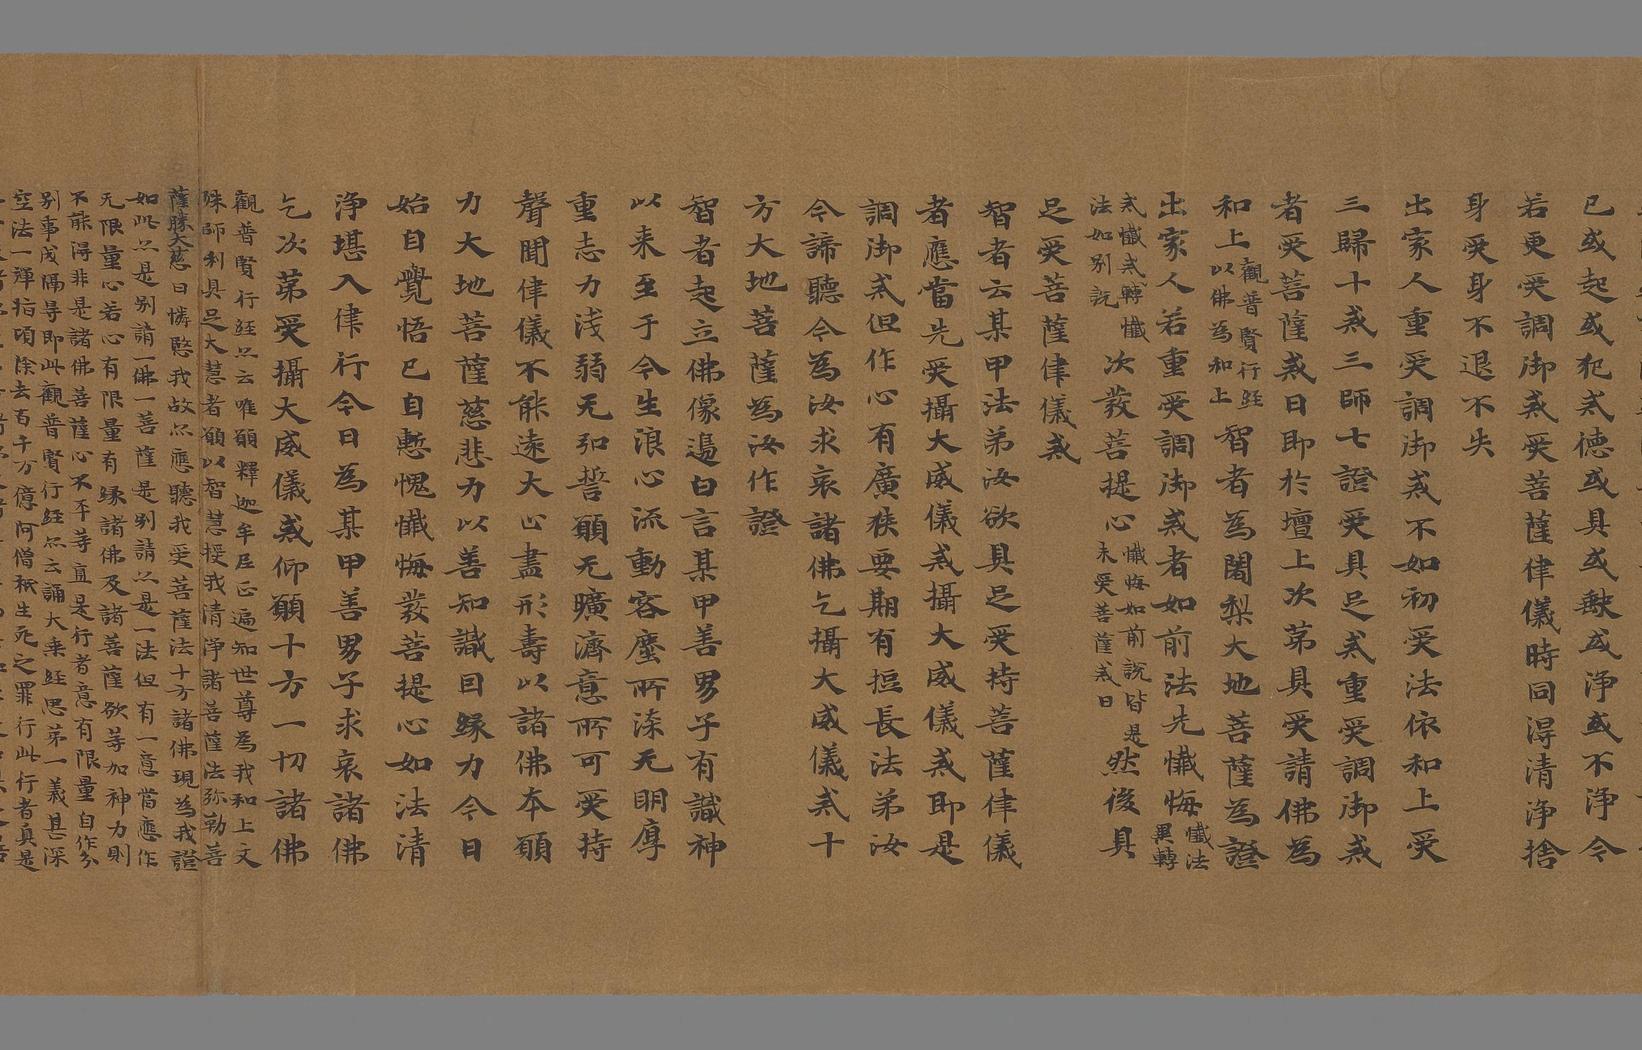 已或起或犯戒德或具或缺或淨或不淨令
若更受調御戒受菩薩律儀時同得清淨捨
身受身不退不失
出家人重受調御戒不如初受法依和上受
三歸十戒三師七證受具足戒重受調御戒
者受菩薩戒日即於壇上次第具受請佛為
和上觀普賢行經
以佛為和上智者為闍梨大地菩薩為證
出家人若重受調御戒者如前法先懺悔懺法
異轉
戒懺戒轉懺
法如別說次發菩提心懺悔如前說皆是
未受菩薩戒日然後具
足受菩薩律儀戒
智者云某甲法弟汝欲具足受持菩薩律儀
者應當先受攝大威儀戒攝大威儀戒即是
調御戒但作心有廣狹要期有短長法弟汝
今諦聽今為汝求哀諸佛乞攝大威儀戒十
方大地菩薩為汝作證
智者起立佛像邊白言某甲善男子有識神
以来至于今生浪心流動容塵所染无明厚
重志力浅弱无弘誓願无曠濟意所可受持
聲聞律儀不能遠大心盡形壽以諸佛本願
力大地菩薩慈悲力以善知識因緣力今日
始自覺悟已自慙愧懺悔發菩提心如法清
淨堪入律行今日為某甲善男子求哀諸佛
乞次第受攝大威儀戒仰願十方一切諸佛
觀普賢行經云唯願釋迦牟尼正遍知世尊為我和上文
殊師利具足大慧者願以智慧授我清淨諸菩薩法弥勒菩
薩勝大慈日憐愍我故亦應聽我受菩薩法十方諸佛現為我證
如此是別請一佛一菩薩是別請是一法但有一意當應作
无限量心若心有限量有緣諸佛及諸菩薩欲等加神力則
不能得非是諸佛菩薩心不平等直是行者意有限量自作分
別事成隔导即此觀普賢行經亦云誦大乘經思第一義甚深
空法一彈指頃除去百千万億阿僧祇生死之罪行此行者真是